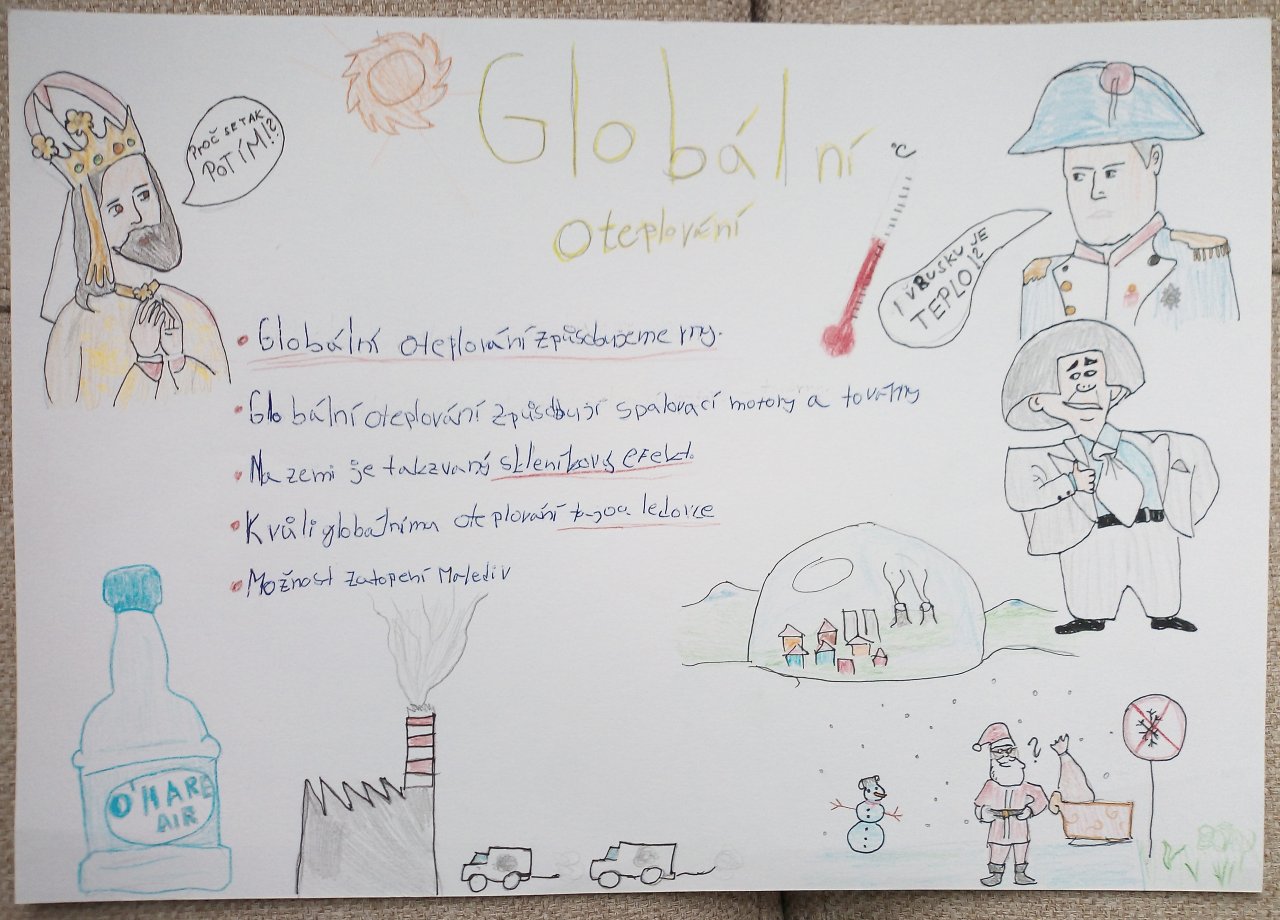 Globální
oteplování
°C
PROČ SE TAK
POTÍM!?
I V RUSKU JE
TEPLO!?
• Globální oteplování způsobujeme my.
• Globální oteplování způsobují spalovací motory a továrny
• Na zemi je takzvaný skleníkový efekt.
• Kvůli globálnímu oteplování tajou ledovce
• Možnost zatopení Malediv
O'HARE
AIR
?